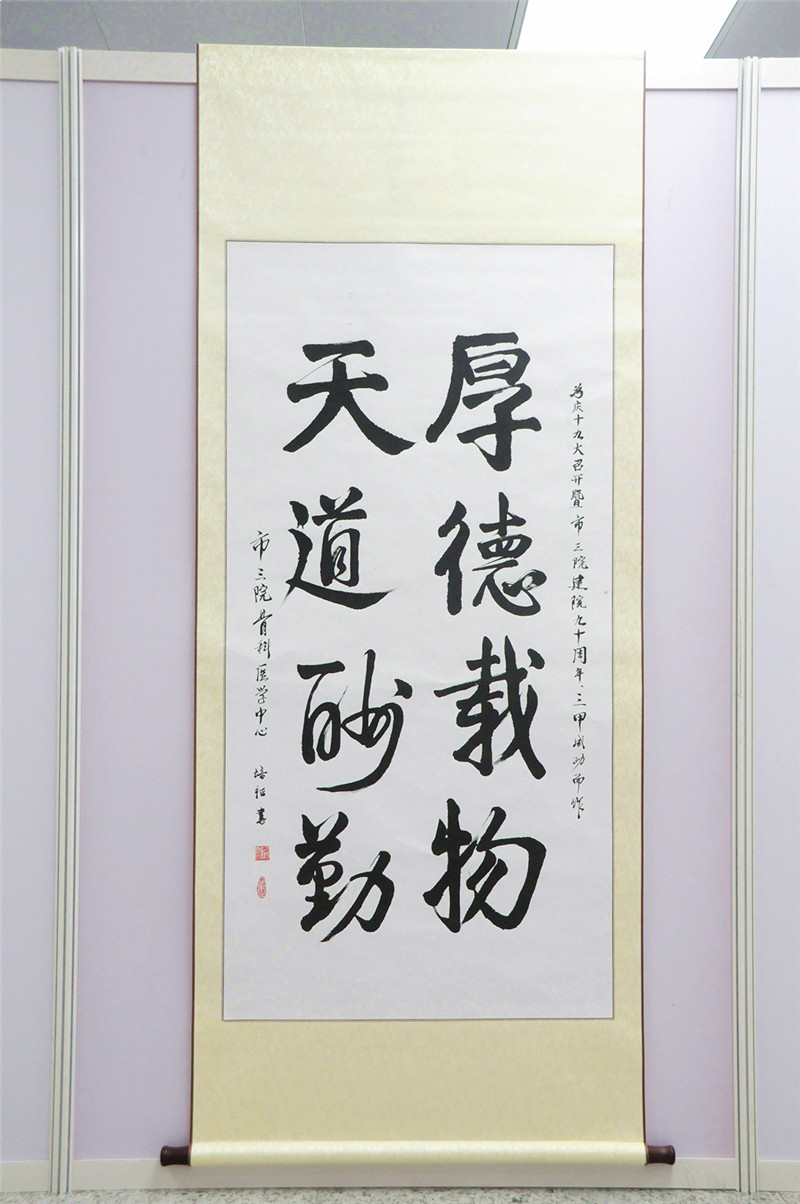 为庆十九大召开暨市三院建院九十周年、三甲成功而作
厚德載物
天道酬勤
市三院骨科医学中心
書